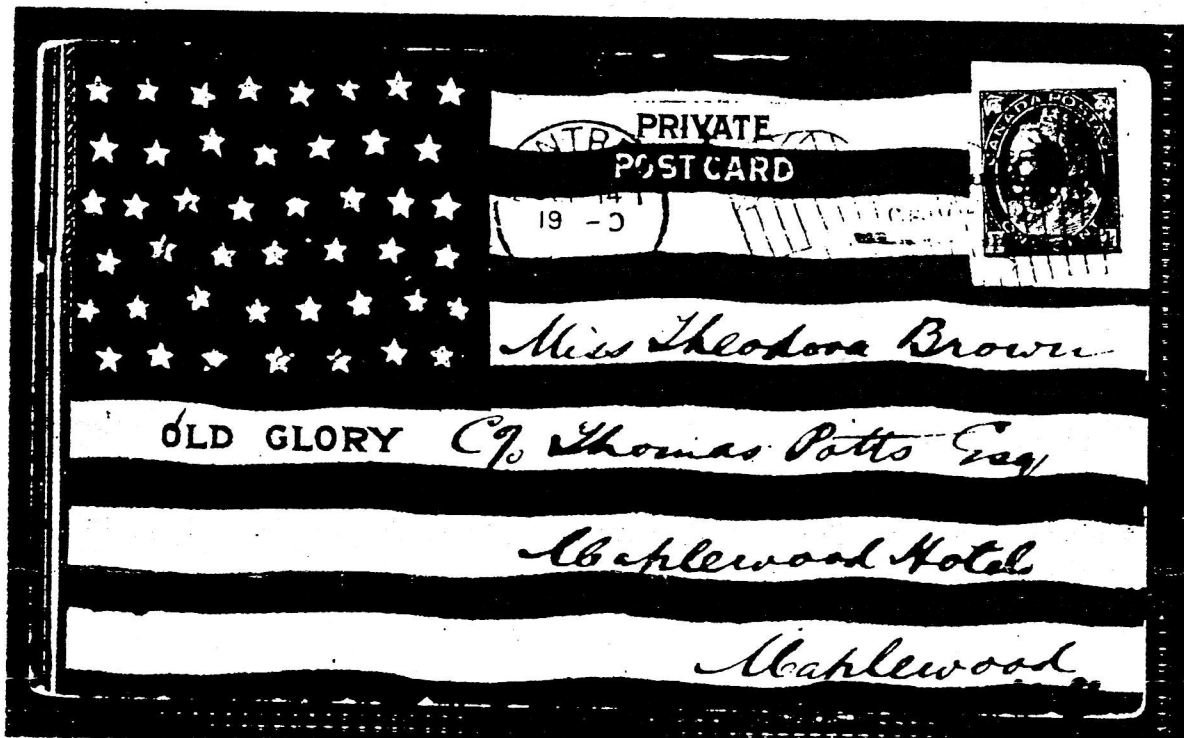 PRIVATE
POST CARD
NTR
14
19
CANADA POSTAGE
Miss Theodora Brown
OLD GLORY C/o Thomas Potts Esq
Maplewood Hotel
Maplewood